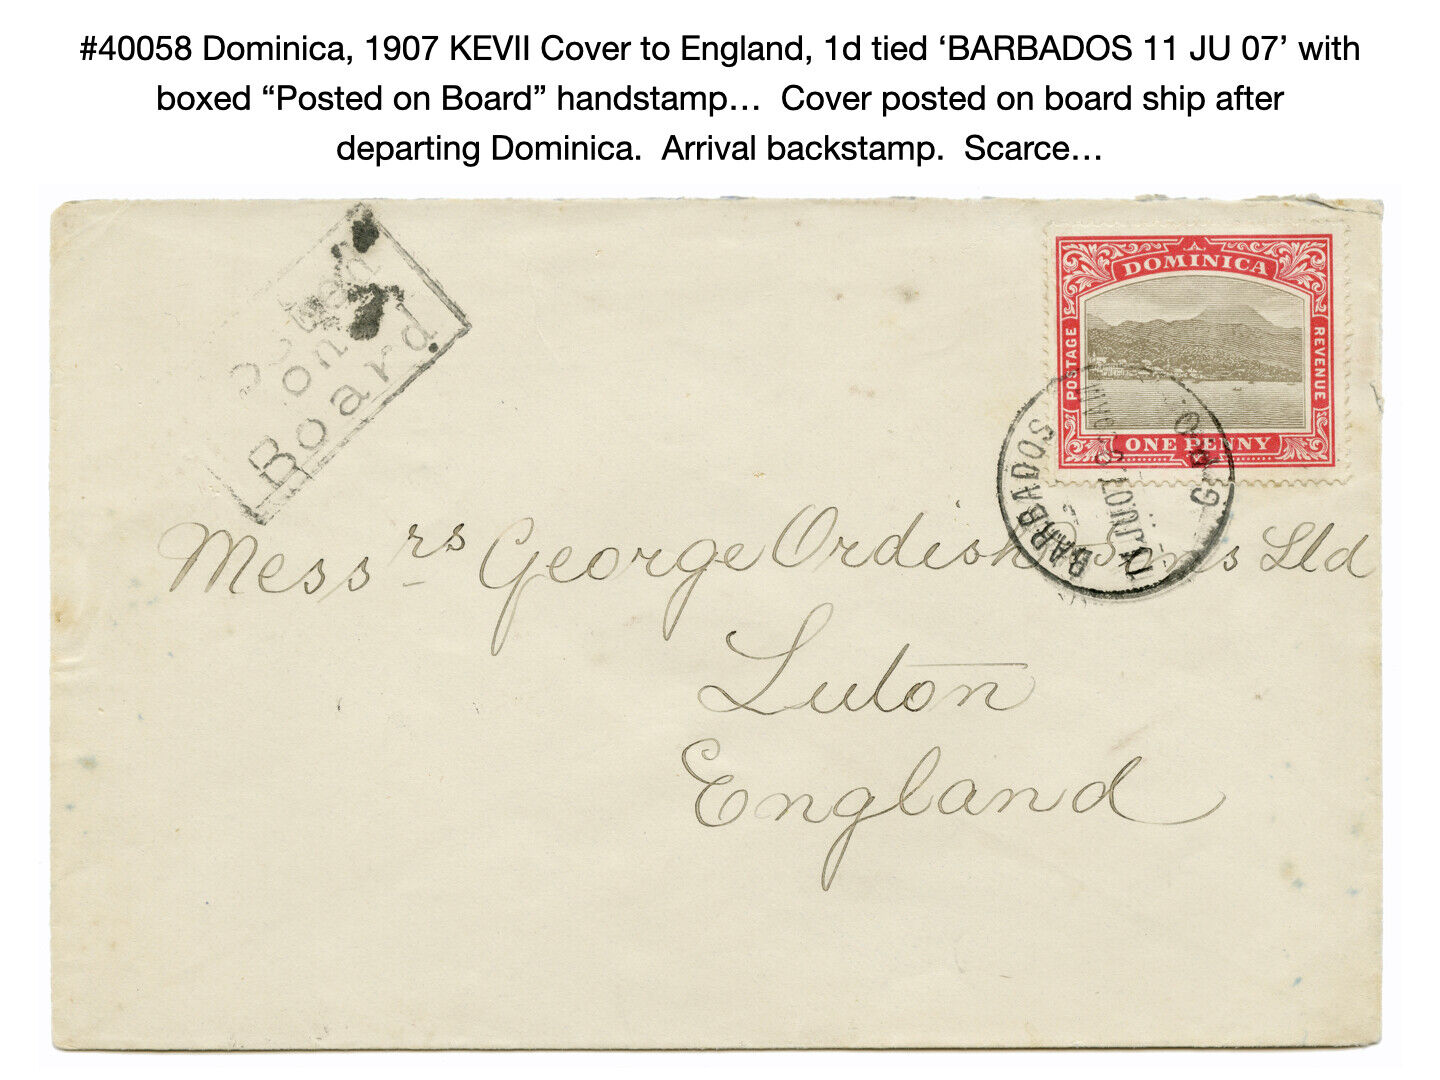 #40058 Dominica, 1907 KEVII Cover to England, 1d tied ‘BARBADOS 11 JU 07’ with
boxed “Posted on Board” handstamp…  Cover posted on board ship after
departing Dominica.  Arrival backstamp.  Scarce…
on
Board
DOMINICA
POSTAGE
REVENUE
ONE PENNY
BARBADOS
G.P.O.
Messrs George Ordish Ltd
Luton
England